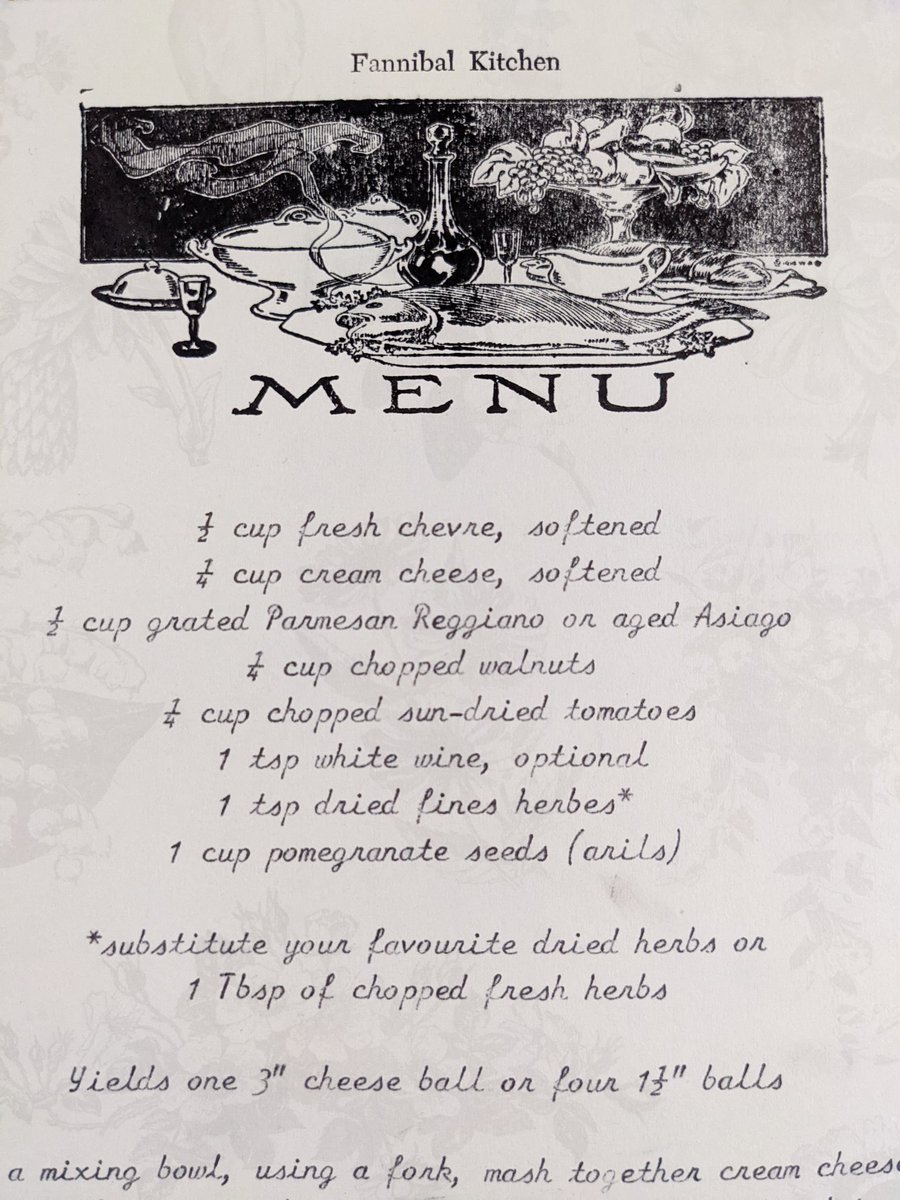 Fannibal Kitchen
MENU
½ cup fresh chevre, softened
¼ cup cream cheese, softened
½ cup grated Parmesan Reggiano or aged Asiago
¼ cup chopped walnuts
¼ cup chopped sun-dried tomatoes
1 tsp white wine, optional
1 tsp dried fines herbes*
1 cup pomegranate seeds (arils)
*substitute your favourite dried herbs or
1 Tbsp of chopped fresh herbs
Yields one 3" cheese ball or four 1½" balls
a mixing bowl, using a fork, mash together cream cheese